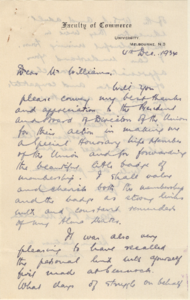 Faculty of Commerce
UNIVERSITY
MELBOURNE, N.3
4th Dec. 1934
Dear Mr Williams,
Will you
please convey my best thanks
and appreciation to the President
and Board of Directors of the Union
for their action in making me
a Special Honorary Life Member
of the Union and for forwarding
the beautiful badge of
membership. I shall value
and cherish both the membership
and the badge as strong links
with and constant reminders
of my
It was also very
pleasing to have recalled
the personal link with yourself
first made at
What days of struggle on behalf